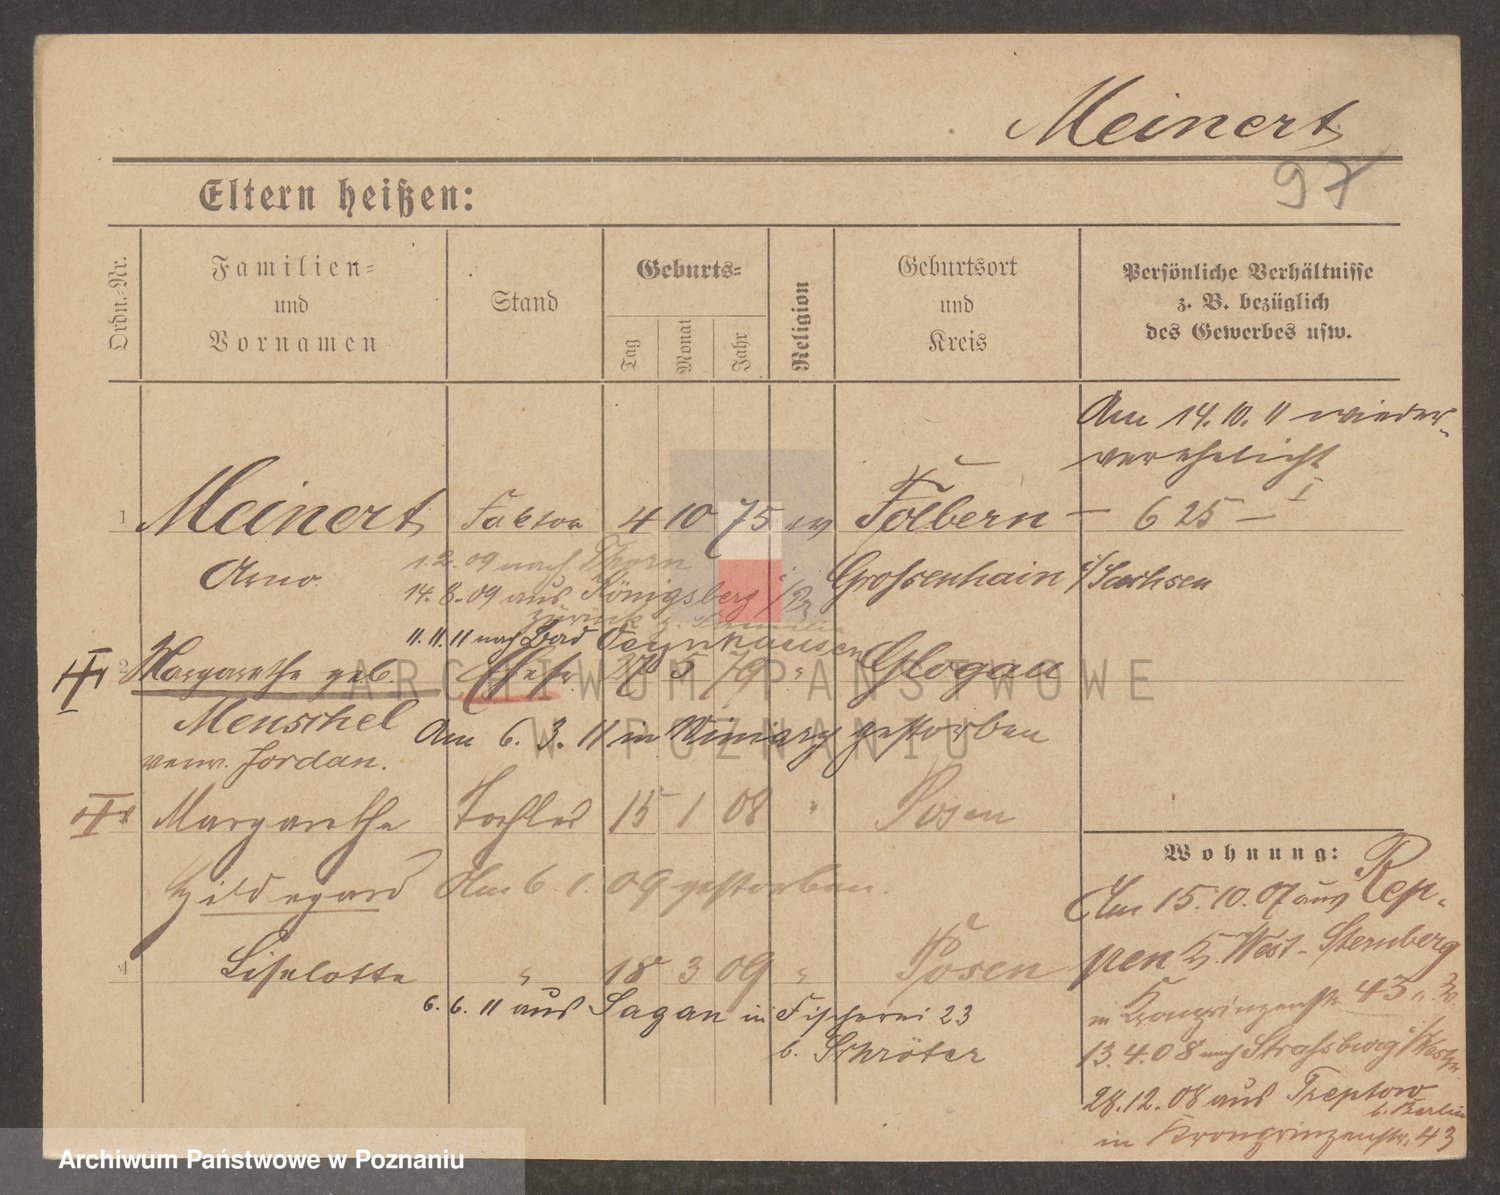 Meinert
97
Eltern heißen:
Ordn.-Nr.
Familien-
und
Vornamen
Stand
Geburts-
Tag
Monat
Jahr
Religion
Geburtsort
und
Kreis
Persönliche Verhältnisse
z. B. bezüglich
des Gewerbes usw.
Am 14. 10. 11 wieder-
verehelicht
1 Meinert Faktor 4 10 75 ev Folbern — 625 — I
Arno Grossenhain i/Sachsen
1.2.09 nach Thorn
14.8.09 aus Königsberg i/Pr
zurück z. Familie
11.11.11 nach Bad Oeynhausen
2 Margarethe geb. Ehefr. 27 5 79 " Glogau
Menschel
verw. Jordan.
Am 6. 3. 11 in Winiary gestorben
Margarethe Tochter 15 1 08 " Posen
Hildegard Am 6. 1. 09 gestorben.
4 Liselotte " 18 3 09 " Posen
6. 6. 11 aus Sagan in Fischerei 23
b. Schröter
Wohnung:
Am 15.10.07 aus Rep-
pen Kr. West-Sternberg
in Kronprinzenstr. 43
13.4.08 nach Strasburg i/Westpr.
28.12.08 aus Treptow
b. Berlin
in Kronprinzenstr. 43
ARCHIWUM PAŃSTWOWE
W POZNANIU
Archiwum Państwowe w Poznaniu